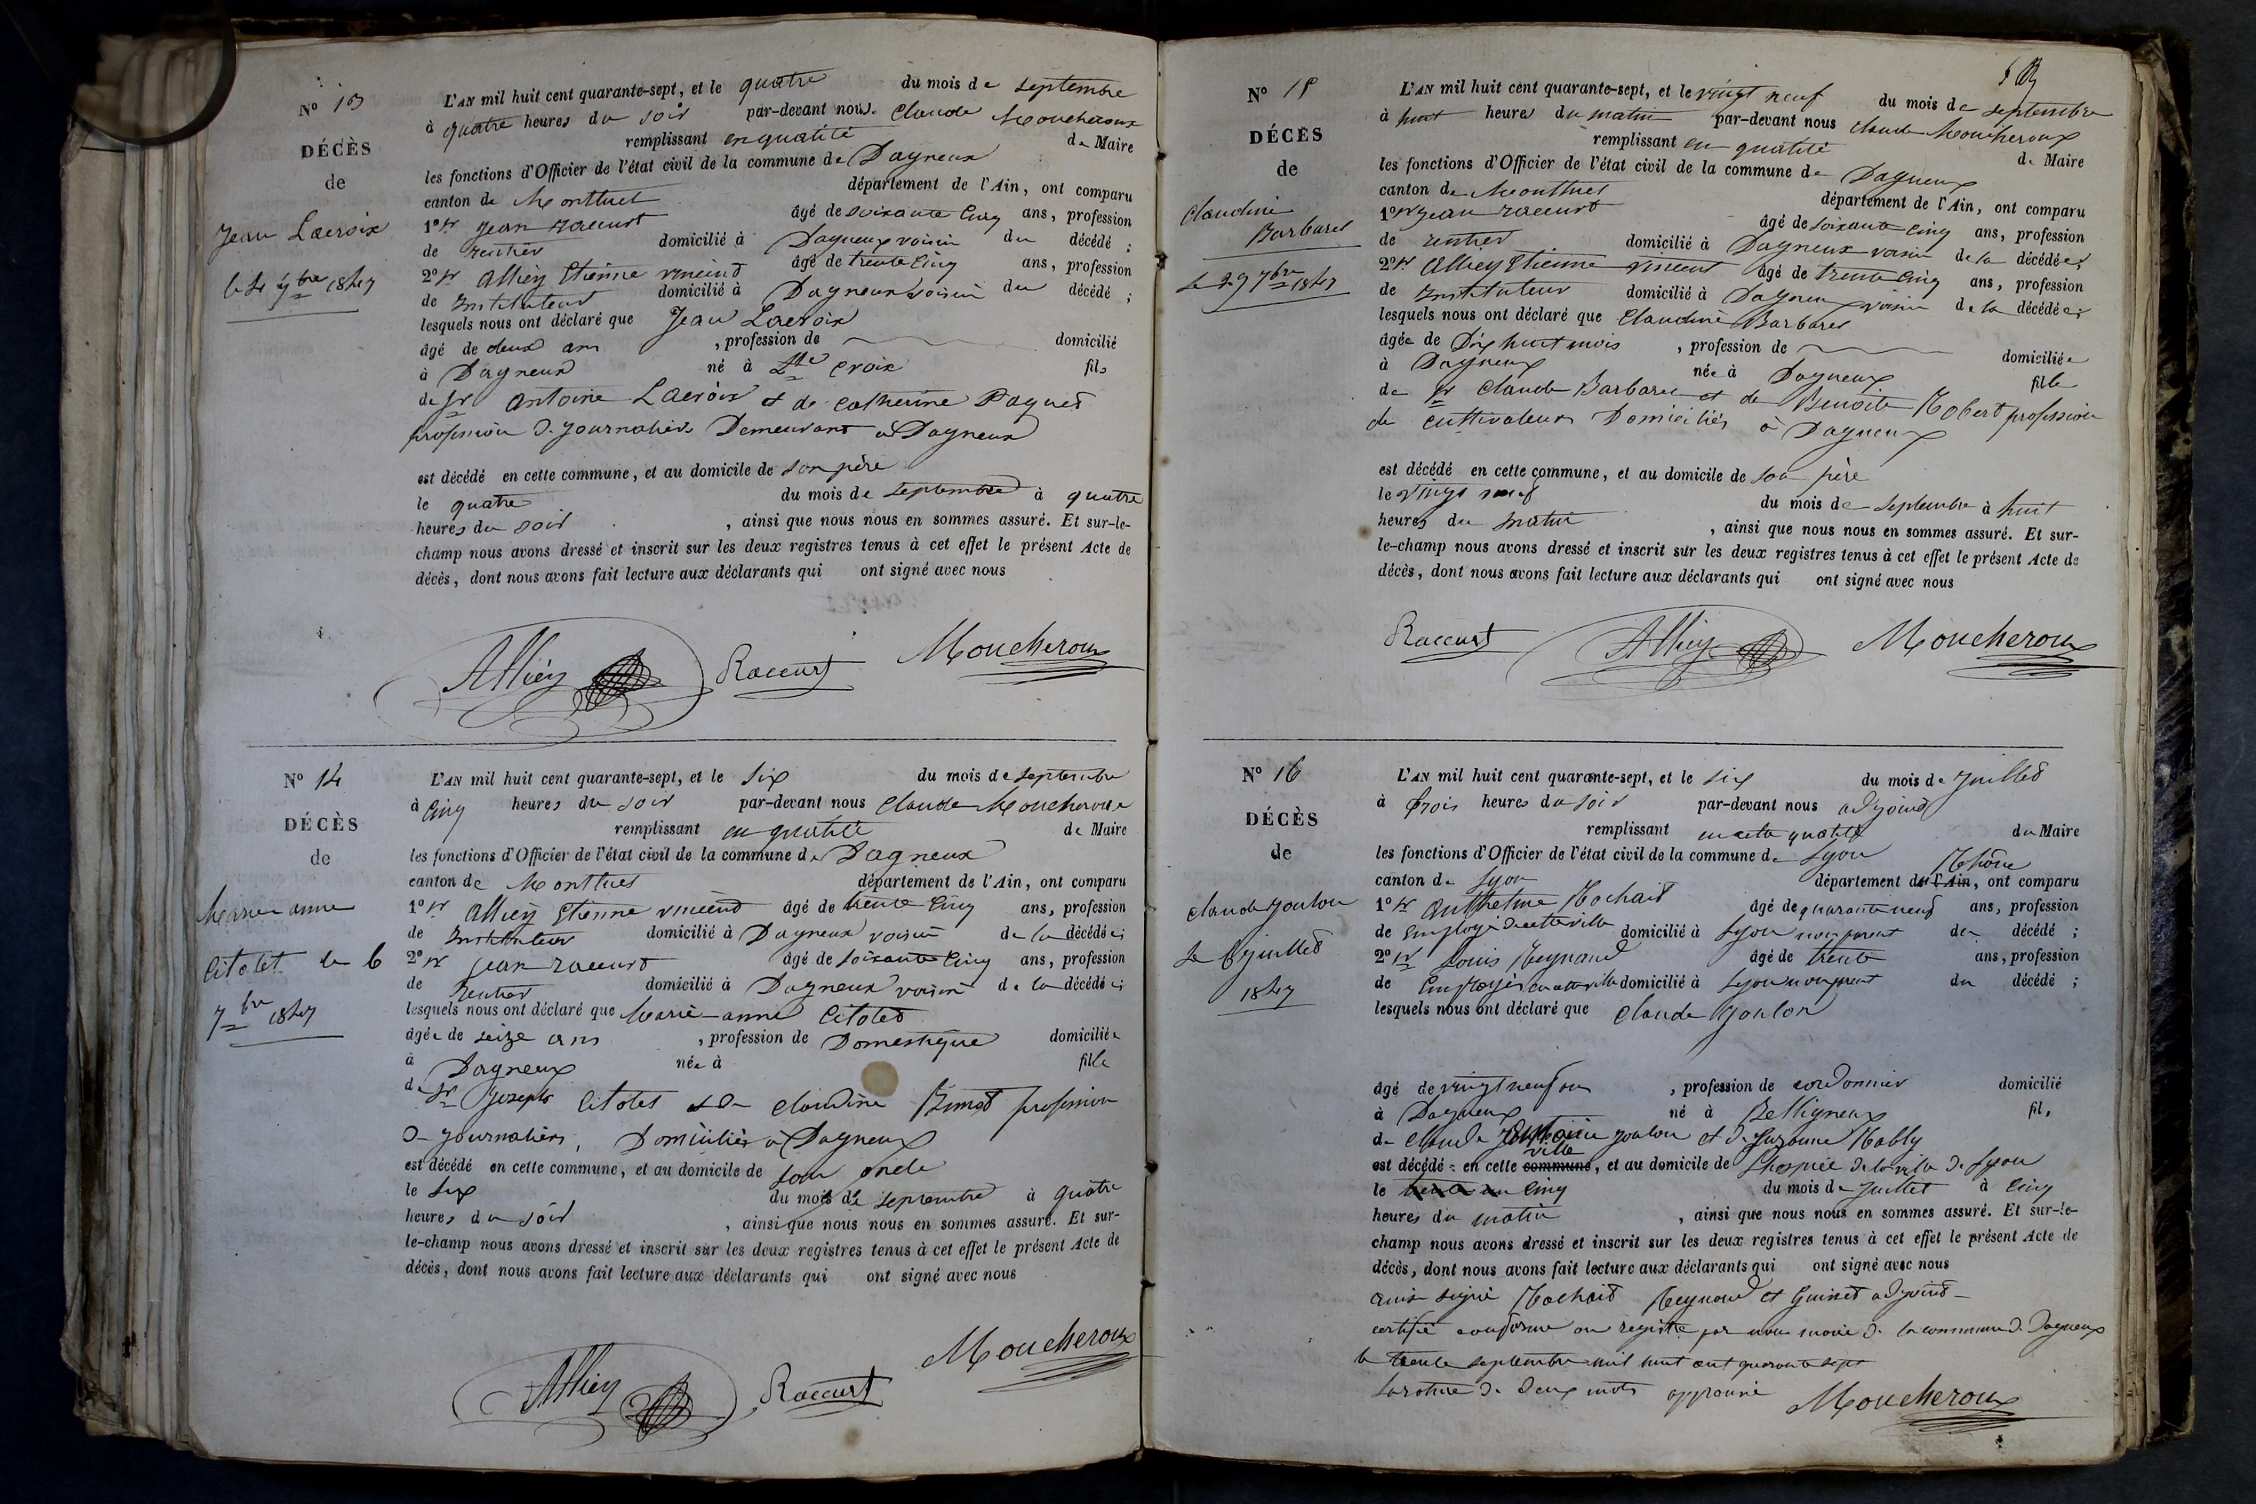 N° 13
DÉCÈS
de
Jean Lacroix
le 4 7bre 1847
L'AN mil huit cent quarante-sept, et le quatre du mois de septembre
à quatre heures du soir par-devant nous Claude Moucheroux
remplissant en qualité de Maire
les fonctions d'Officier de l'état civil de la commune de Dagneux
canton de Montluel département de l'Ain, ont comparu
1° Sr Jean Raccurt âgé de soixante cinq ans, profession
de rentier domicilié à Dagneux voisin du décédé ;
2° Sr Alliey Etienne vincend âgé de trente cinq ans, profession
de Instituteur domicilié à Dagneux voisin du décédé ;
lesquels nous ont déclaré que Jean Lacroix
âgé de deux ans , profession de domicilié
à Dagneux né à Ste Croix fils
de Sr Antoine Lacroix et de Catherine Paquet
profession de journaliers Demeurant à Dagneux
est décédé en cette commune, et au domicile de son père
le quatre du mois de septembre à quatre
heures du soir , ainsi que nous nous en sommes assuré. Et sur-le-
champ nous avons dressé et inscrit sur les deux registres tenus à cet effet le présent Acte de
décès, dont nous avons fait lecture aux déclarants qui ont signé avec nous
Alliey Raccurt Moucheroux
N° 14
DÉCÈS
de
Marie anne
Citolet le 6
7bre 1847
L'AN mil huit cent quarante-sept, et le six du mois de septembre
à cinq heures du soir par-devant nous Claude Moucheroux
remplissant en qualité de Maire
les fonctions d'Officier de l'état civil de la commune de Dagneux
canton de Montluel département de l'Ain, ont comparu
1° Sr Alliey Etienne vincend âgé de trente cinq ans, profession
de Instituteur domicilié à Dagneux voisin de la décédée ;
2° Sr Jean Raccurt âgé de soixante cinq ans, profession
de Rentier domicilié à Dagneux voisin de la décédée ;
lesquels nous ont déclaré que Marie-anne Citolet
âgée de seize ans , profession de Domestique domiciliée
à Dagneux née à fille
de Sr Joseph Citolet et de Claudine profession
de journaliers, Domiciliés à Dagneux
est décédé en cette commune, et au domicile de son oncle
le six du mois de septembre à quatre
heures du soir , ainsi que nous nous en sommes assuré. Et sur-
le-champ nous avons dressé et inscrit sur les deux registres tenus à cet effet le présent Acte de
décès, dont nous avons fait lecture aux déclarants qui ont signé avec nous
Alliey Raccurt Moucheroux
N° 15
DÉCÈS
de
Claudine
Barbaret
Le 29 7bre 1847
L'AN mil huit cent quarante-sept, et le vingt neuf du mois de septembre
à huit heures du matin par-devant nous Claude Moucheroux
remplissant en qualité de Maire
les fonctions d'Officier de l'état civil de la commune de Dagneux
canton de Montluel département de l'Ain, ont comparu
1° Sr Jean Raccurt âgé de soixante cinq ans, profession
de rentier domicilié à Dagneux voisin de la décédée ;
2° Sr Alliey Etienne vincent âgé de trente cinq ans, profession
de Instituteur domicilié à Dagneux voisin de la décédée ;
lesquels nous ont déclaré que Claudine Barbaret
âgée de Dix huit mois , profession de domiciliée
à Dagneux née à Dagneux fille
de Sr Claude Barbaret et de Benoite Robert profession
de cultivateurs Domiciliés à Dagneux
est décédé en cette commune, et au domicile de son père
le vingt neuf du mois de septembre à huit
heures du matin , ainsi que nous nous en sommes assuré. Et sur-
le-champ nous avons dressé et inscrit sur les deux registres tenus à cet effet le présent Acte de
décès, dont nous avons fait lecture aux déclarants qui ont signé avec nous
Raccurt Alliey Moucheroux
N° 16
DÉCÈS
de
Claude Joulon
Le 6 juillet
1847
L'AN mil huit cent quarante-sept, et le six du mois de Juillet
à trois heures du soir par-devant nous adjoint
remplissant en cette qualité du Maire
les fonctions d'Officier de l'état civil de la commune de Lyon
canton de Lyon département de l'Ain Rhône, ont comparu
1° Sr Anthelme Rochaid âgé de quarante neuf ans, profession
de Employé de cette ville domicilié à Lyon non parent du décédé ;
2° Sr Louis Reynaud âgé de trente ans, profession
de Employé en cette ville domicilié à Lyon non parent du décédé ;
lesquels nous ont déclaré que Claude Joulon
âgé de vingt neuf ans , profession de cordonnier domicilié
à Dagneux né à Relligneux fils
de Claude Joulon et de Suzanne Rably
est décédé en cette commune ville, et au domicile de L'hospice de la ville de Lyon
le cinq du mois de Juillet à cinq
heures du matin , ainsi que nous nous en sommes assuré. Et sur-le-
champ nous avons dressé et inscrit sur les deux registres tenus à cet effet le présent Acte de
décès, dont nous avons fait lecture aux déclarants qui ont signé avec nous
ainsi signé Rochaid Reynaud et Guinet adjoint
certifié conforme au registre par nous maire de la commune de Dagneux
le trente septembre mil huit cent quarante sept
La rature de deux mots approuvé Moucheroux